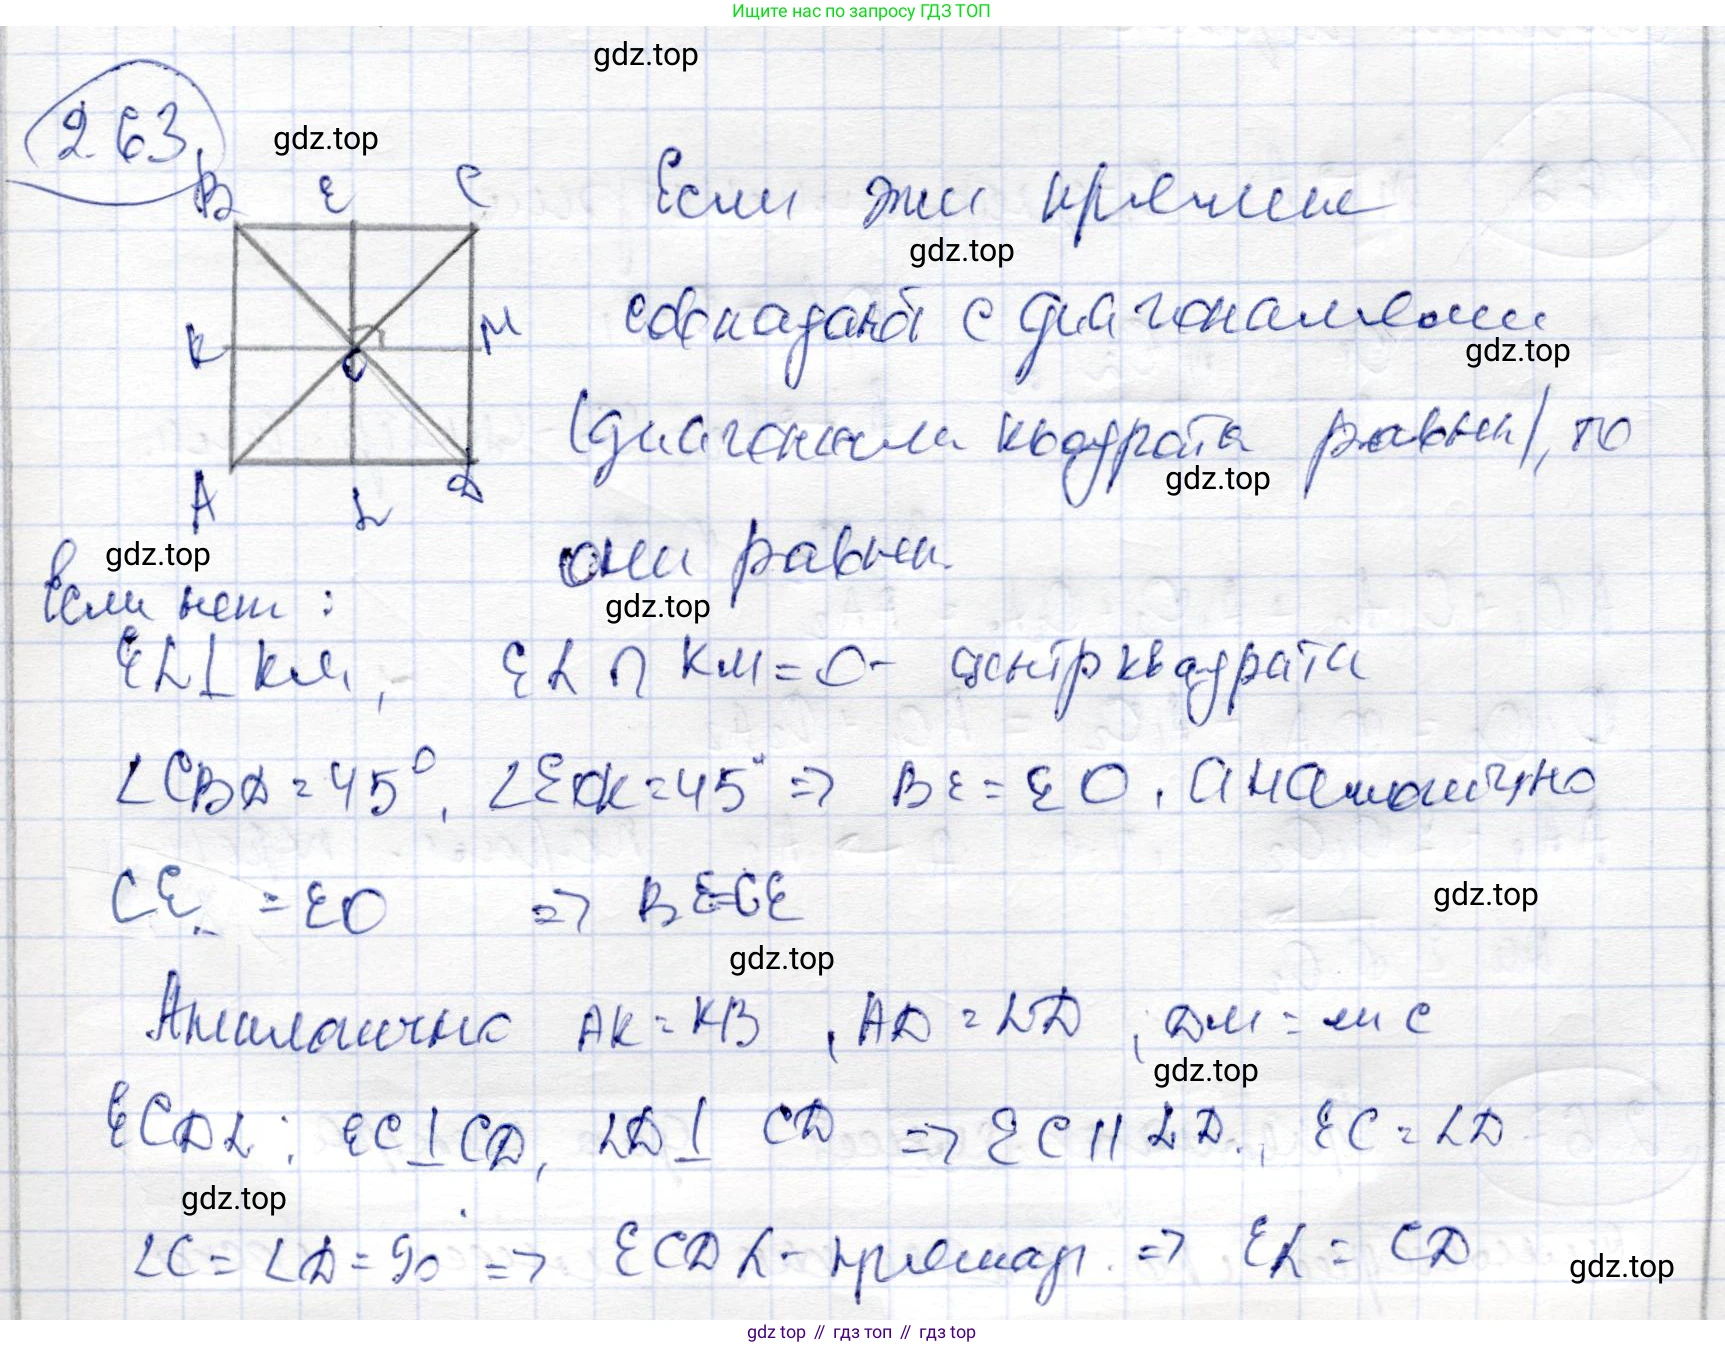 Ищите нас по запросу ГДЗ ТОП
gdz.top
263
gdz.top
B E C
Если эти прямые
gdz.top
совпадают с диагоналями
K M
O
gdz.top
(диагонали квадрата равны), то
gdz.top
A L D
они равны.
gdz.top
gdz.top
Если нет:
EL⊥KM, EL ∩ KM = O - центр квадрата
∠CBD = 45°, ∠EOK = 45° => BE = EO, аналогично
CE = EO => BE=CE
gdz.top
gdz.top
Аналогично AK = KB, AD = LD, DM = MC
gdz.top
ECDL: EC⊥CD, LD⊥ CD => EC || LD, EC = LD
gdz.top
∠C = ∠D = 90° => ECDL - прямоуг. => EL = CD
gdz.top
gdz top // гдз топ // gdz top